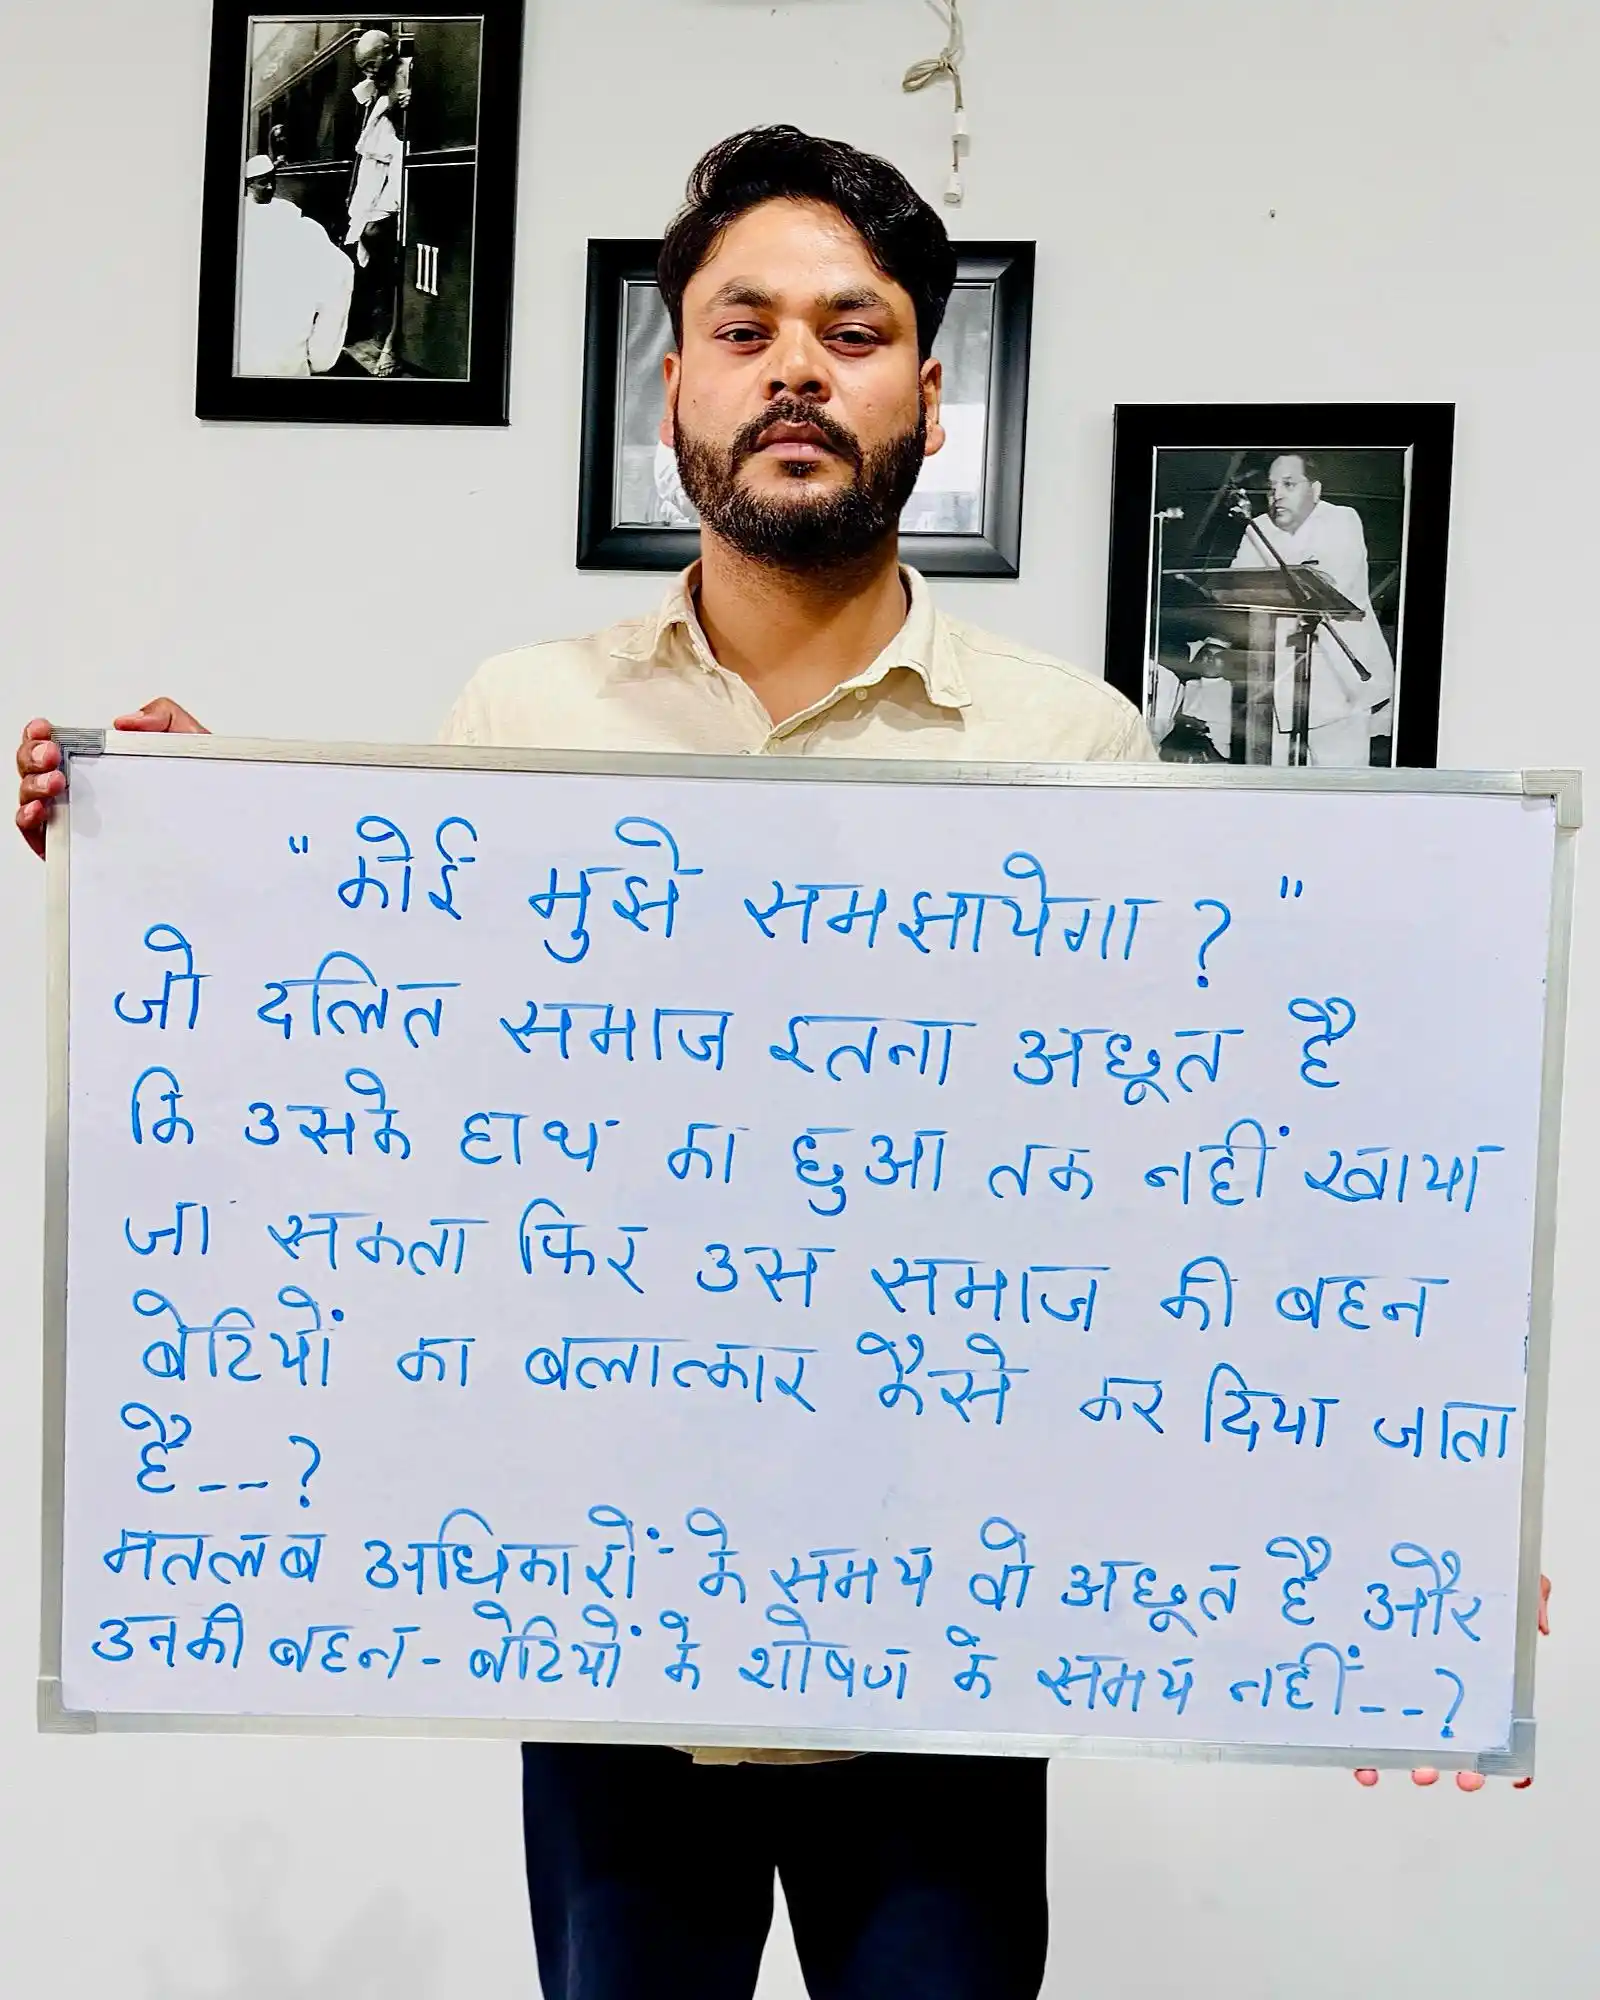 "कोई मुझे समझायेगा ?"
जो दलित समाज इतना अछूत है
कि उसके हाथ का छुआ तक नहीं खाया
जा सकता फिर उस समाज की बहन
बेटियों का बलात्कार कैसे कर दिया जाता
है---?
मतलब अधिकारों के समय वो अछूत है और
उनकी बहन-बेटियों के शोषण के समय नहीं---?
III